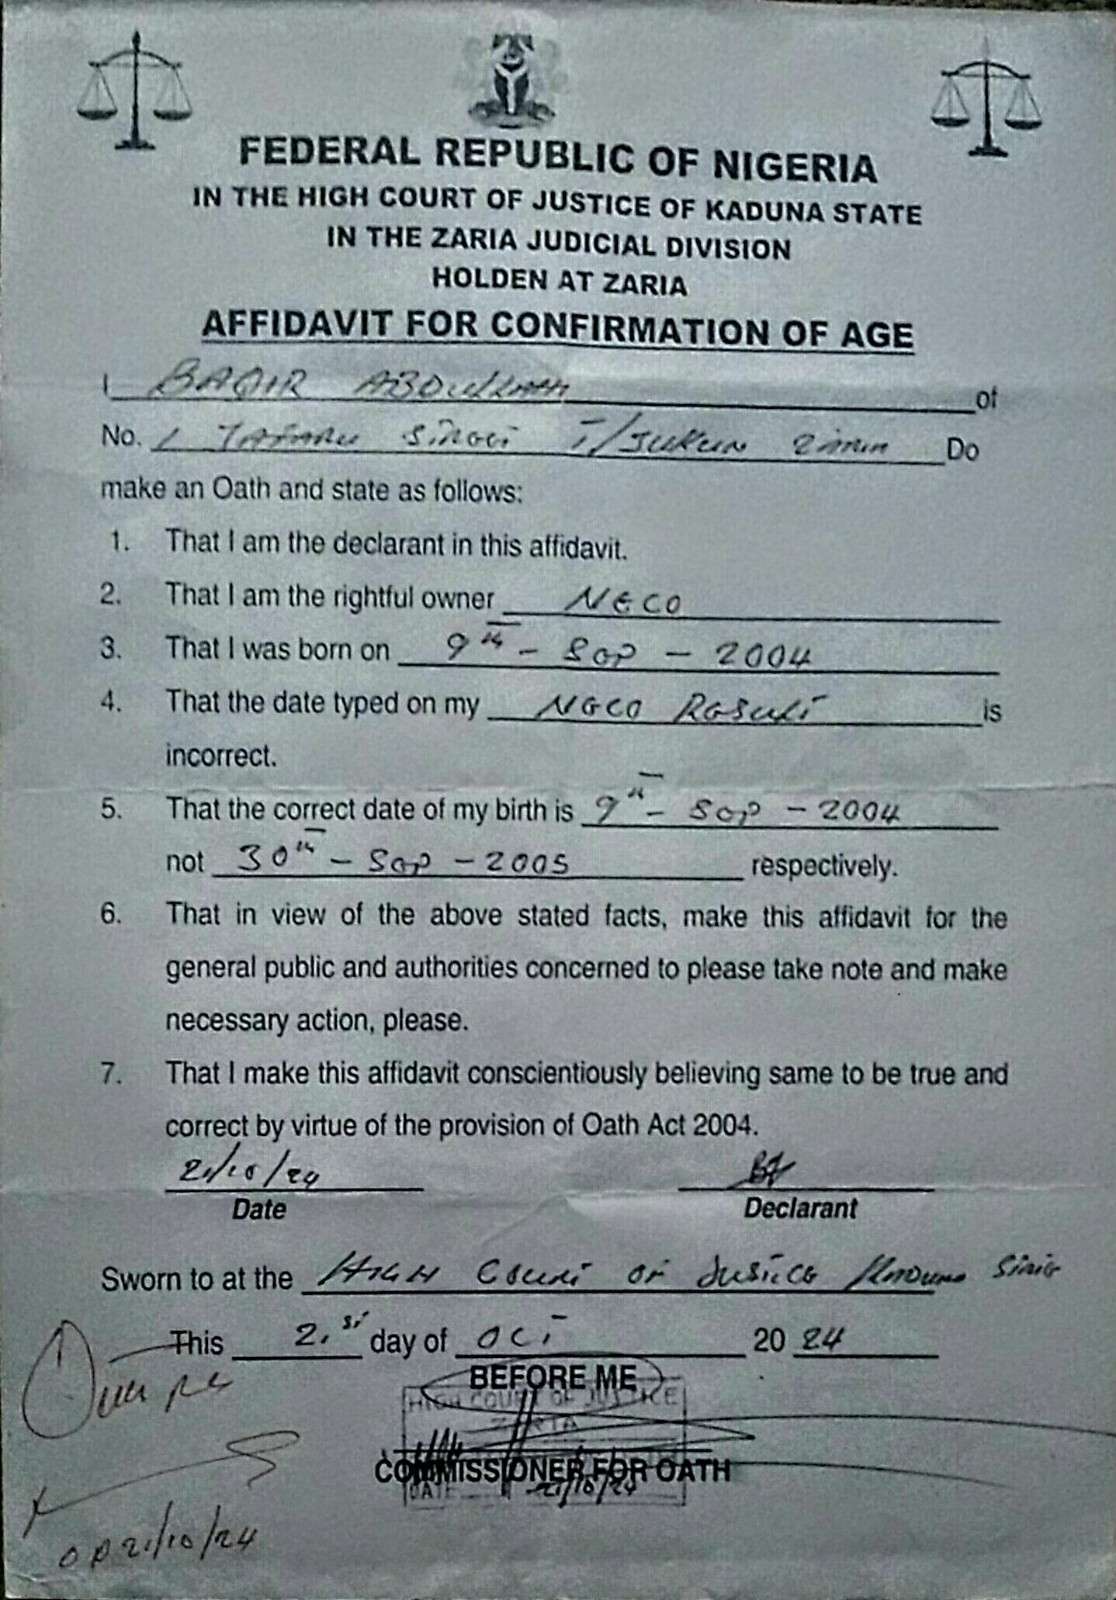 FEDERAL REPUBLIC OF NIGERIA
IN THE HIGH COURT OF JUSTICE OF KADUNA STATE
IN THE ZARIA JUDICIAL DIVISION
HOLDEN AT ZARIA
AFFIDAVIT FOR CONFIRMATION OF AGE
I BAQIR ABDULLAHI of
No. 1 T/JUKUN Do
make an Oath and state as follows:
1. That I am the declarant in this affidavit.
2. That I am the rightful owner NECO
3. That I was born on 9th - Sep - 2004
4. That the date typed on my NECO Result is
incorrect.
5. That the correct date of my birth is 9th - Sep - 2004
not 30th - Sep - 2005 respectively.
6. That in view of the above stated facts, make this affidavit for the
general public and authorities concerned to please take note and make
necessary action, please.
7. That I make this affidavit conscientiously believing same to be true and
correct by virtue of the provision of Oath Act 2004.
21/10/24
Date Declarant
Sworn to at the HIGH Court of Justice Kaduna State
This 21st day of OCT 2024
BEFORE ME
HIGH COURT OF JUSTICE
ZARIA
COMMISSIONER FOR OATH
DATE 21/10/24
21/10/24